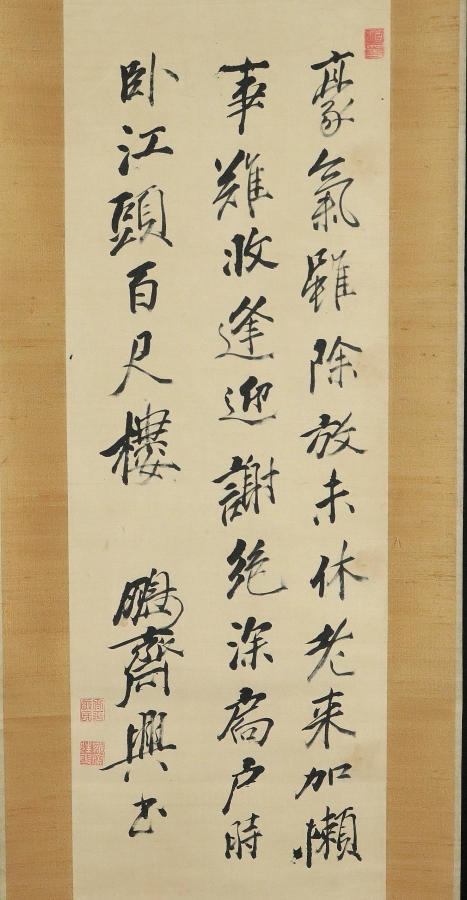 豪氣雖除放未休老来加懶
事難收逢迎謝絶深扃戸時
卧江頭百尺樓 鵬齋興書